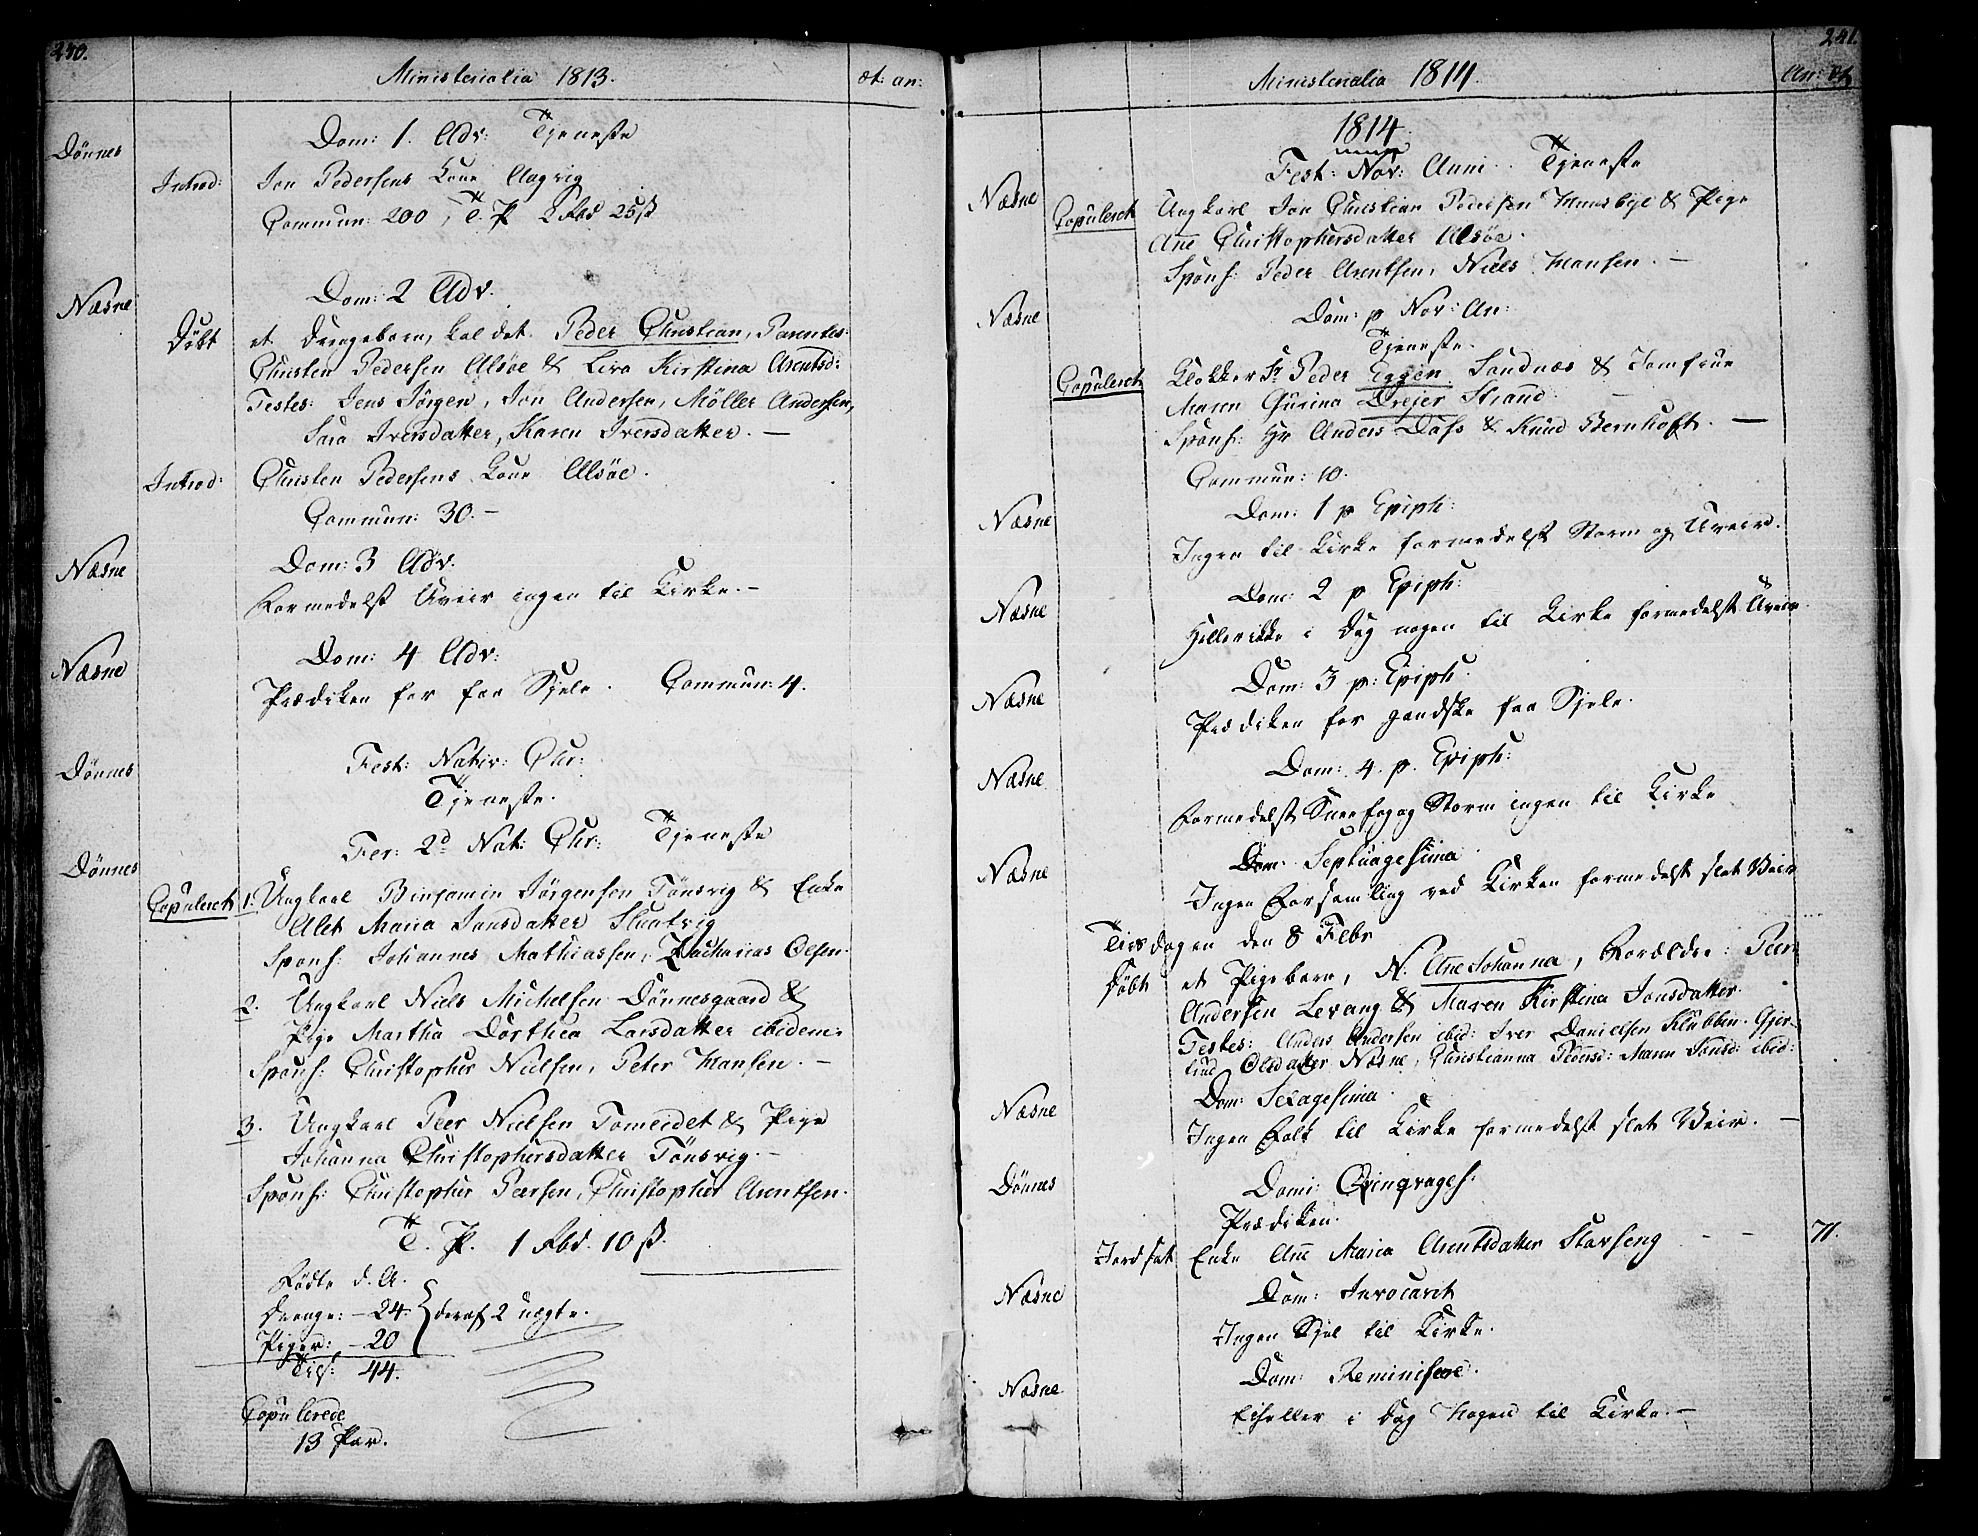 240.
Ministerialia 1813.
æt: an:
Dönnes
Dom: 1. Adv: Tjeneste
Introd: Jon Pedersens Kone Aagvig
Commun: 200, T. P. 2 Rbd 25 ß
Næsne
Dom: 2 Adv.
Døbt et Drengebarn, kaldet Peder Christian, Parentes:
Christen Pedersen Alsöe & Kirstina Arentsd:
Testes: Jens Jörgen, Jon Andersen, Möller Andersen,
Sara Iversdatter, Karen Iversdatter. —
Introd: Christen Pedersens Kone Alsöe.
Commun: 30. —
Næsne
Dom: 3 Adv.
Formedelst Uveir ingen til Kirke. —
Næsne
Dom: 4 Adv:
Prædiken for faa Sjele. Commun: 4.
Dönnes
Fest: Nativ: Chr:
Tjeneste.
Dönnes
Fer: 2d Nat: Chr: Tjeneste
Copuleret 1. Ungkarl Binjamin Jörgensen Tönsvig & Enke
Alet Maria Jonsdatter
Spons: Johannes Mathiassen, Zacharias Olsen.
2. Ungkarl Niels Michelsen Dönnesgaard &
Pige Martha Dorthea Larsdatter ibidem.
Spons: Christopher Nielsen, Peter Hansen. —
3. Ungkarl Peer Nielsen Tomeidet & Pige
Johanna Christophersdatter Tönsvig. —
Spons: Christopher Peersen, Christopher Arentsen.
T. P. 1 Rbd. 10 ß.
Födte d. A.
Drenge: — 24. } deraf 2 uægte.
Piger: — 20
Tils: 44.
Copulerede
13 Par.
241.
Ministerialia 1814.
An: æt
1814.
Næsne
Fest: Nov: Anni Tjeneste
Copuleret Ungkarl Jon Christian Pedersen Huusbye & Pige
Ane Christophersdatter Alsöe.
Spons: Peder Arentsen, Niels Hansen. —
Næsne
Dom: p Nov: An:
Tjeneste.
Copuleret Klokker Sr Peder Eggen Sandnæs & Jomfrue
Maren Gurina Drejer Strand.
Spons: Hr Anders Dass & Knud Bernhoft. —
Commun: 10.
Næsne
Dom: 1 p Epiph:
Ingen til Kirke formedelst Storm og Uveir.
Næsne
Dom: 2 p Epiph:
Heller ikke i Dag nogen til Kirke formedelst Uveir.
Næsne
Dom: 3 p: Epiph.
Prædiken for gandske faa Sjele.
Næsne
Dom: 4. p. Epiph:
Formedelst Sneefog og Storm ingen til Kirke
Næsne
Dom. Septuagesima
Ingen Forsamling ved Kirken formedelst slet Veir
Tirsdagen den 8 Febr
Döbt et Pigebarn, N. Ane Johanna, Forældre: Peer
Andersen Levang & Maren Kirstina Jonsdatter.
Testes: Anders Andersen ibid: Iver Danielsen Klubben. Gjer-
trud Olsdatter Næsne, Christianna Pedersd: Maren Jonsd: ibid:
Næsne
Dom: Sexagesima.
Ingen Folk til Kirke formedelst slet Veir. —
Dönnes
Domi: Qvinqvages:
Prædiken.
Jordfæst Enke Ane Maria Arentsdatter Stavseng — — 71.
Næsne
Dom: Invocavit
Ingen Sjel til Kirke.
Næsne
Dom: Reminiscere.
Eiheller i Dag Nogen til Kirke. —